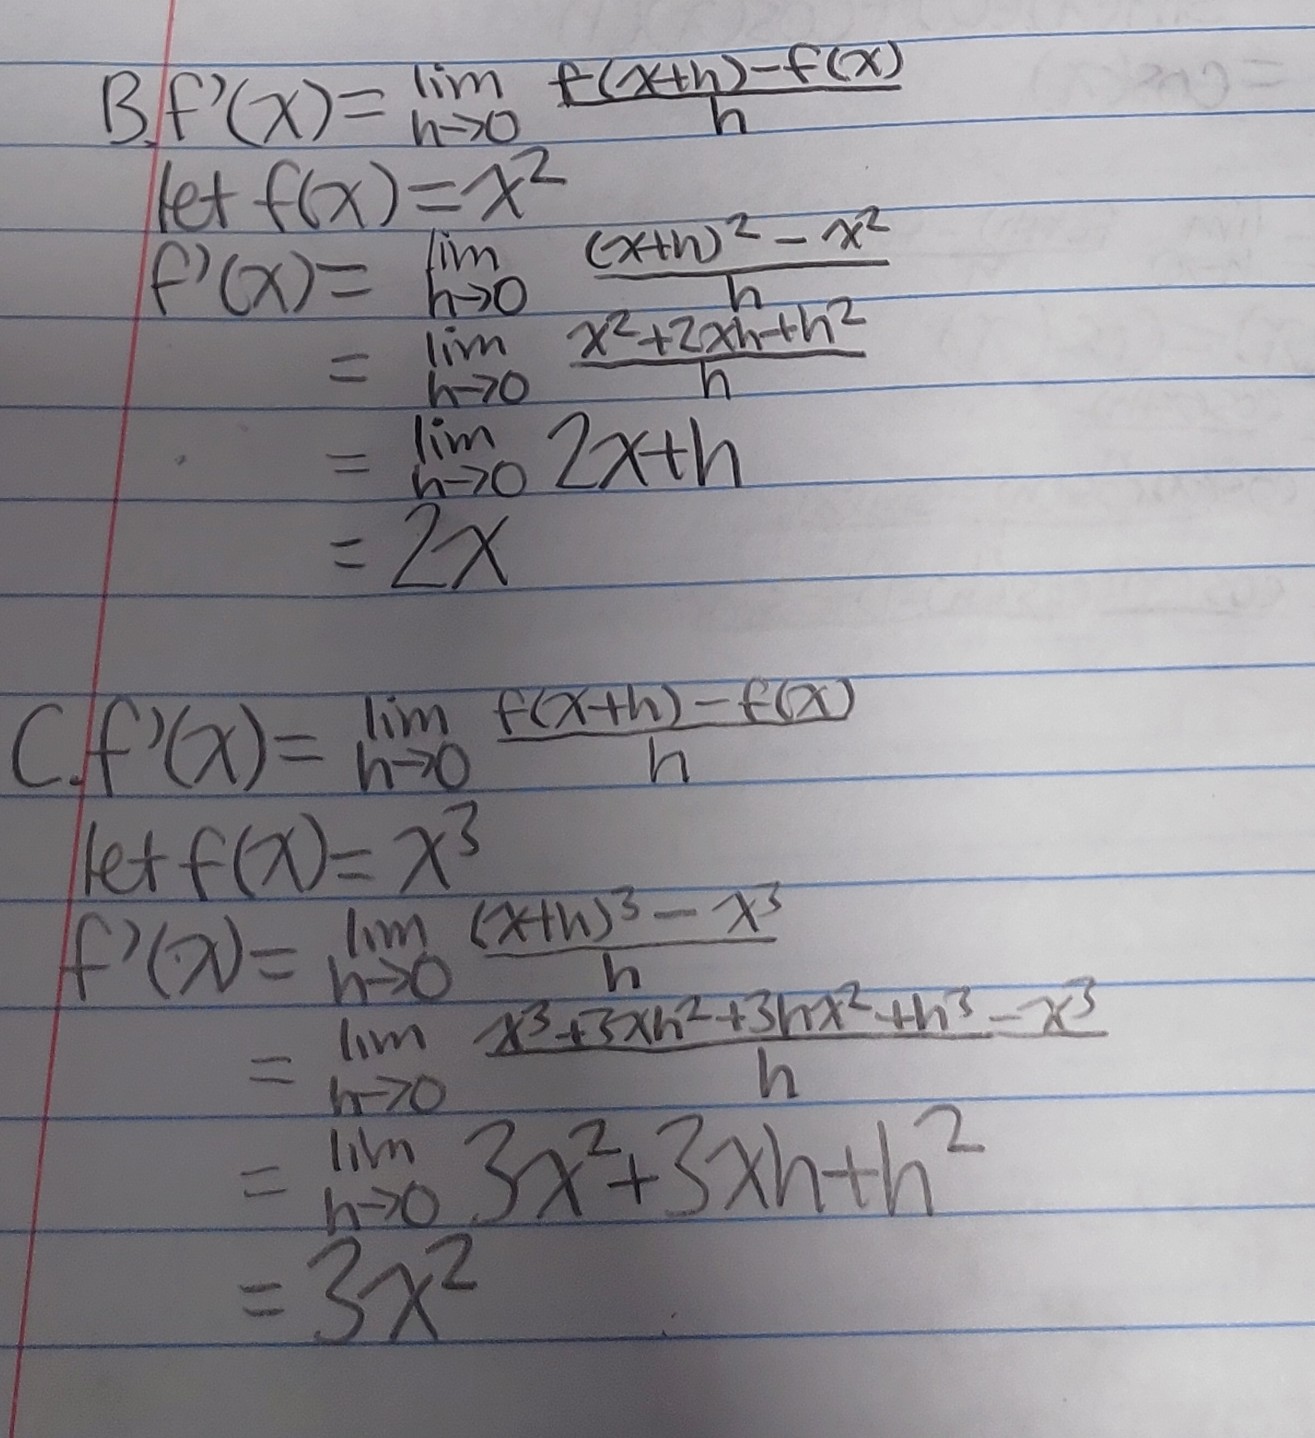 B. f'(x) = lim h→0 f(x+h) - f(x) / h
let f(x) = x²
f'(x) = lim h→0 (x+h)² - x² / h
= lim h→0 x² + 2xh + h² / h
= lim h→0 2x + h
= 2x
C. f'(x) = lim h→0 f(x+h) - f(x) / h
let f(x) = x³
f'(x) = lim h→0 (x+h)³ - x³ / h
= lim h→0 x³ + 3xh² + 3hx² + h³ - x³ / h
= lim h→0 3x² + 3xh + h²
= 3x²